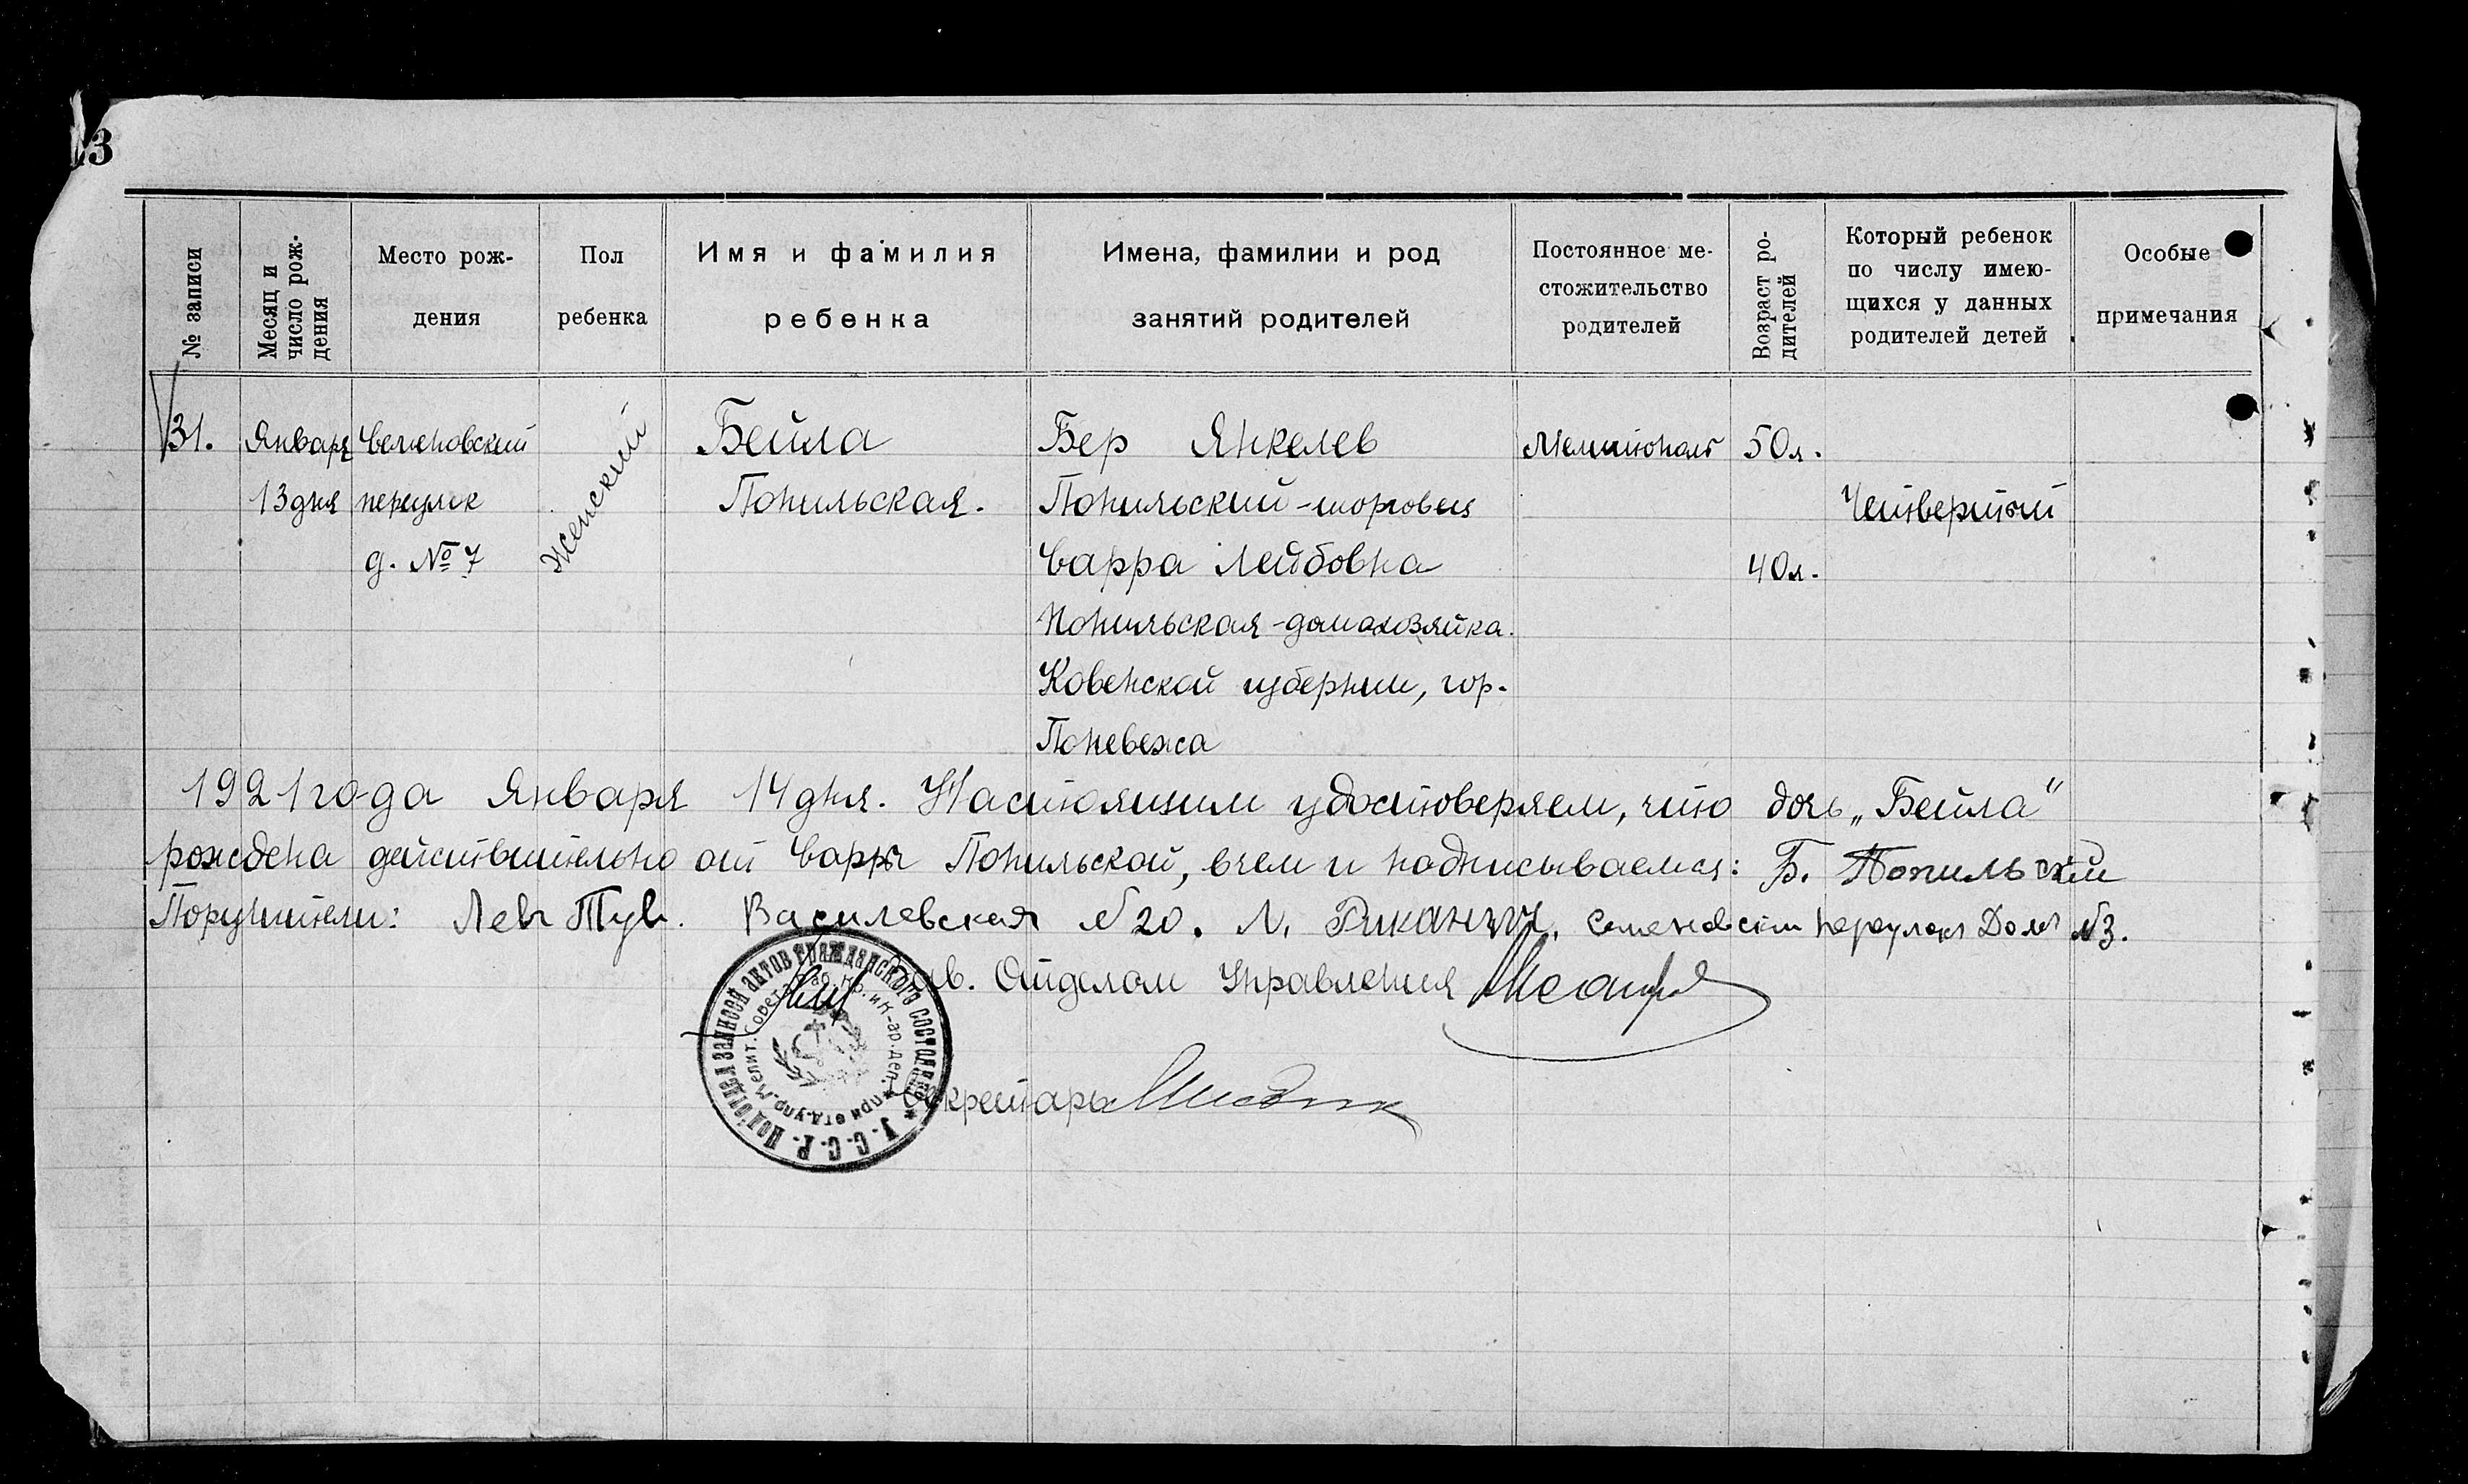 3
№ записи
Месяц и
число рож-
дения
Место рож-
дения
Пол
ребенка
Имя и фамилия
ребенка
Имена, фамилии и род
занятий родителей
Постоянное ме-
стожительство
родителей
Возраст ро-
дителей
Который ребенок
по числу имею-
щихся у данных
родителей детей
Особые
примечания
31.
Января
13 дня
Семеновский
переулок
д. № 7
Женский
Бейла
Попильская.
Бер Янкелев
Попильский - торговец
Сарра Лейбовна
Попильская - домахозяйка.
Ковенской губернии, гор.
Поневежа
Мелитополь
50 л.
40 л.
Четвертый
1921 года Января 14 дня. Настоящим удостоверяем, что дочь „Бейла“
рождена действительно от Сарры Попильской, в чем и подписываемся: Б. Попильский
Поручители: Лев Тув. Василевская № 20. Л. Семеновский переулок Дом № 3.
Зав. Отделом Управления
Секретарь
У.С.С.Р. Подотдел записей актов гражданского состояния
при отд. упр. Мелит. Совета раб., кр. и к-ар. деп.